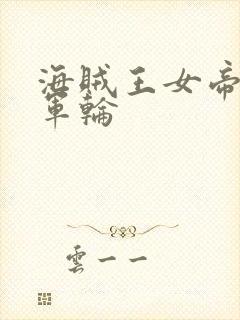 海賊王女帝
軍輪
雲一一